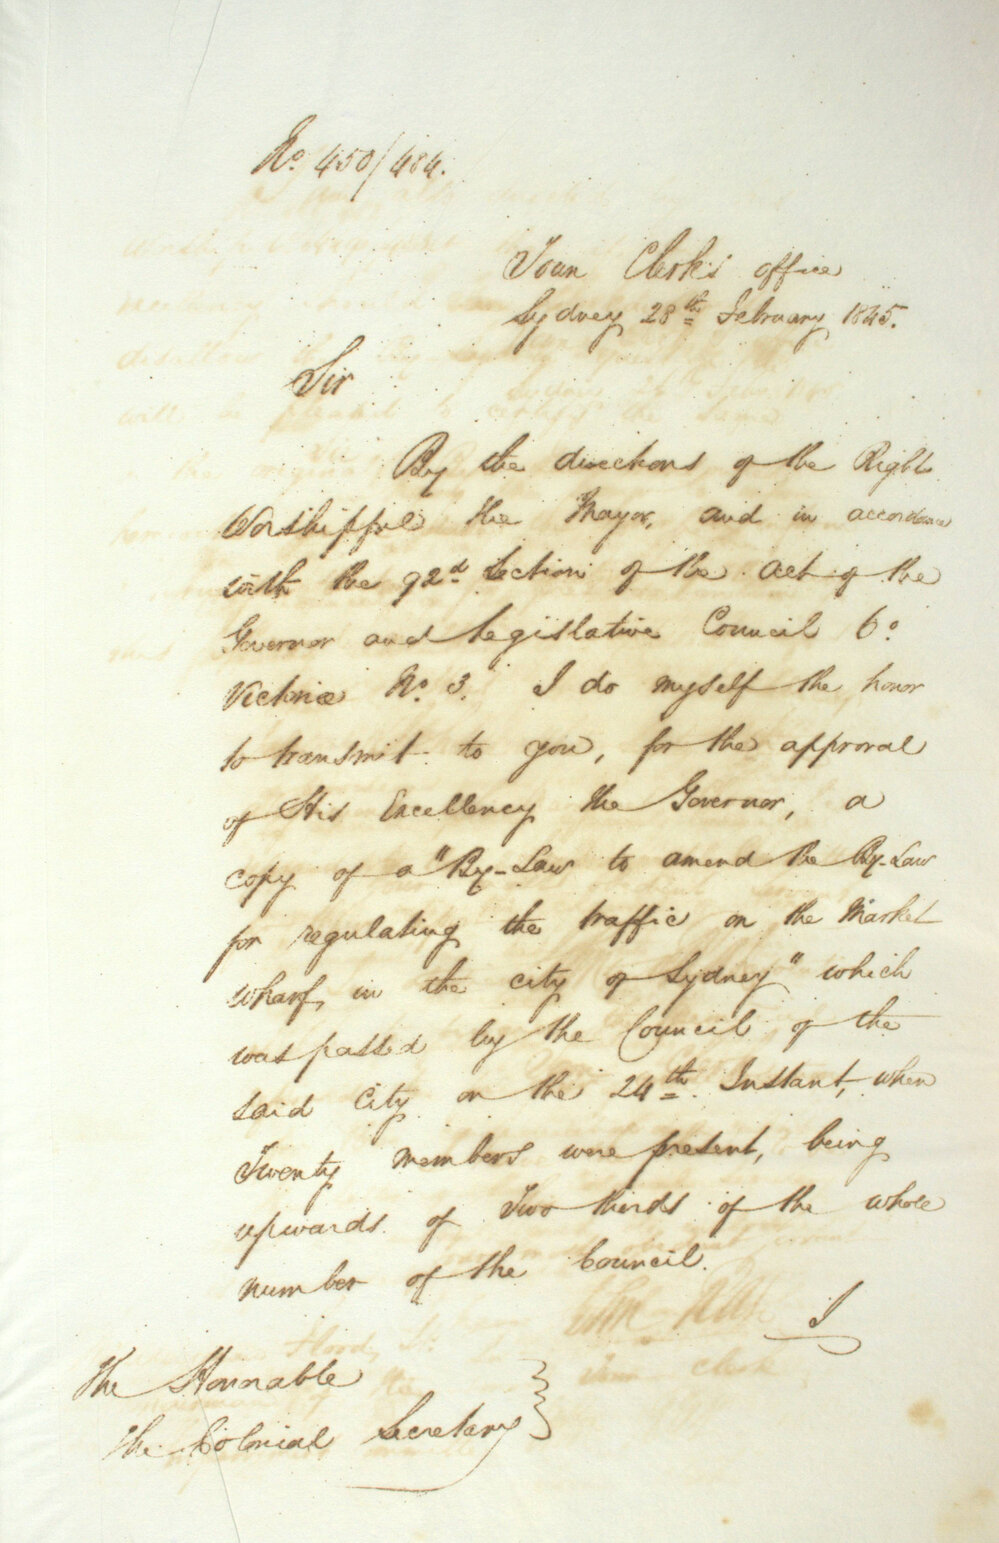 No. 450/484.
Town Clerk's office
Sydney 28th February 1845.
Sir
By the directions of the Right
Worshipful the Mayor, and in accordance
with the 92d Section of the Act of the
Governor and Legislative Council 6o
Victoria No. 3. I do myself the honor
to transmit to you, for the approval
of His Excellency the Governor, a
copy of a "By-Law to amend the By-Law
for regulating the traffic on the Market
Wharf, in the city of Sydney" which
was passed by the Council of the
said City on the 24th Instant, when
Twenty members were present, being
upwards of Two thirds of the whole
number of the Council.
I
The Honorable
The Colonial Secretary